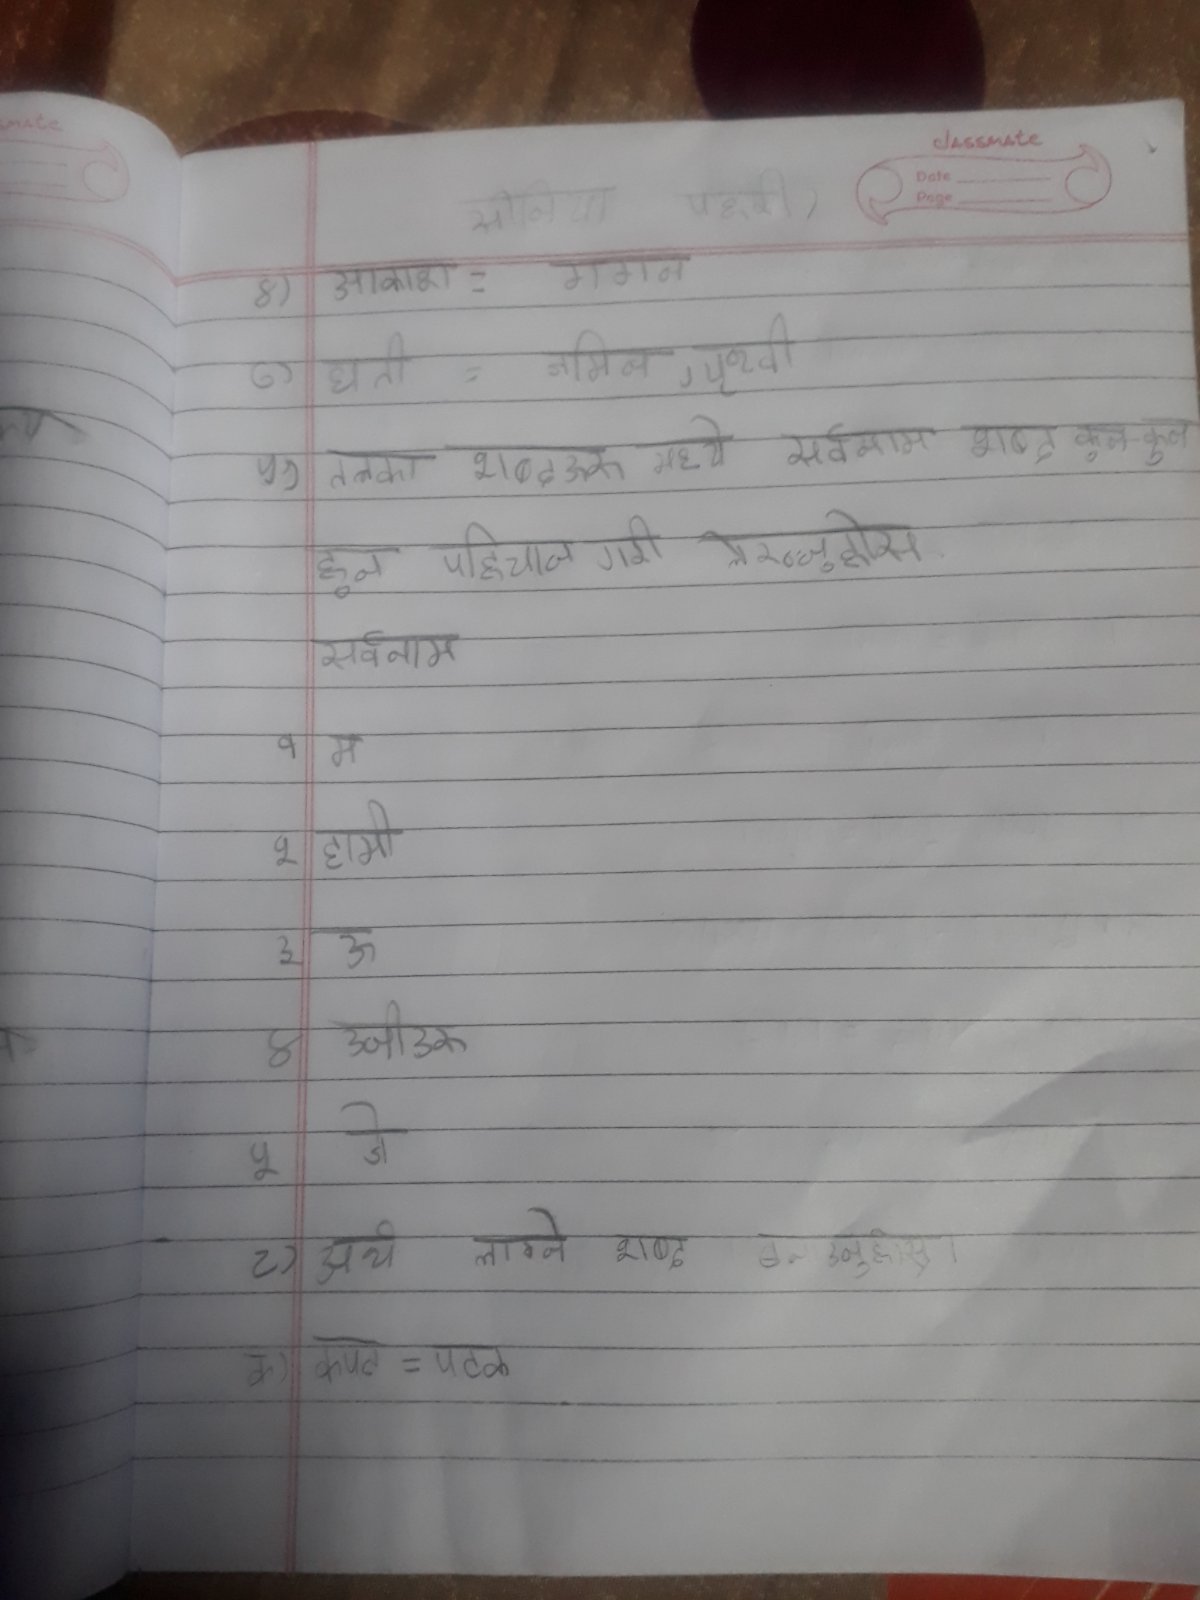 classmate
Date
Page
सोनिया
४) आकाश = गगन
ध्रती = जमिन, पृथ्वी
५) तलका शब्दहरू मध्ये सर्वनाम शब्द कुन-कुन
हुन पहिचान गरी
सर्वनाम
१ म
२ हामी
३ ऊ
४ उनीहरू
५ जे
८) अर्थ लाग्ने शब्द
क) कपट = पटक